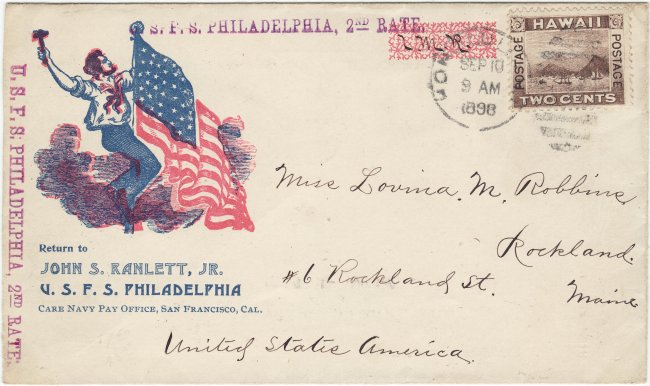 U. S. F. S. PHILADELPHIA, 2ND RATE.
S. F. S. PHILADELPHIA, 2ND RATE.
SEP 10
9 AM
1898
HAWAII
POSTAGE
POSTAGE
TWO CENTS
Miss Lovina. M. Robbins
Rockland.
#6 Rockland St.
Maine
United States America.
Return to
JOHN S. RANLETT, JR.
U. S. F. S. PHILADELPHIA
CARE NAVY PAY OFFICE, SAN FRANCISCO, CAL.